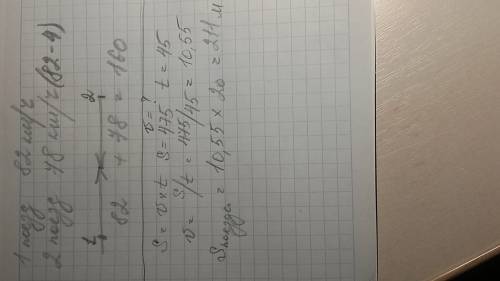 1 поезд 82 км/ч
2 поезд 78 км/ч (82-4)
1 2
82 + 78 = 160
S = v x t S = 475 t = 45
v = ?
v = S/t = 475/45 = 10,55
S поезда = 10,55 x 20 = 211 м